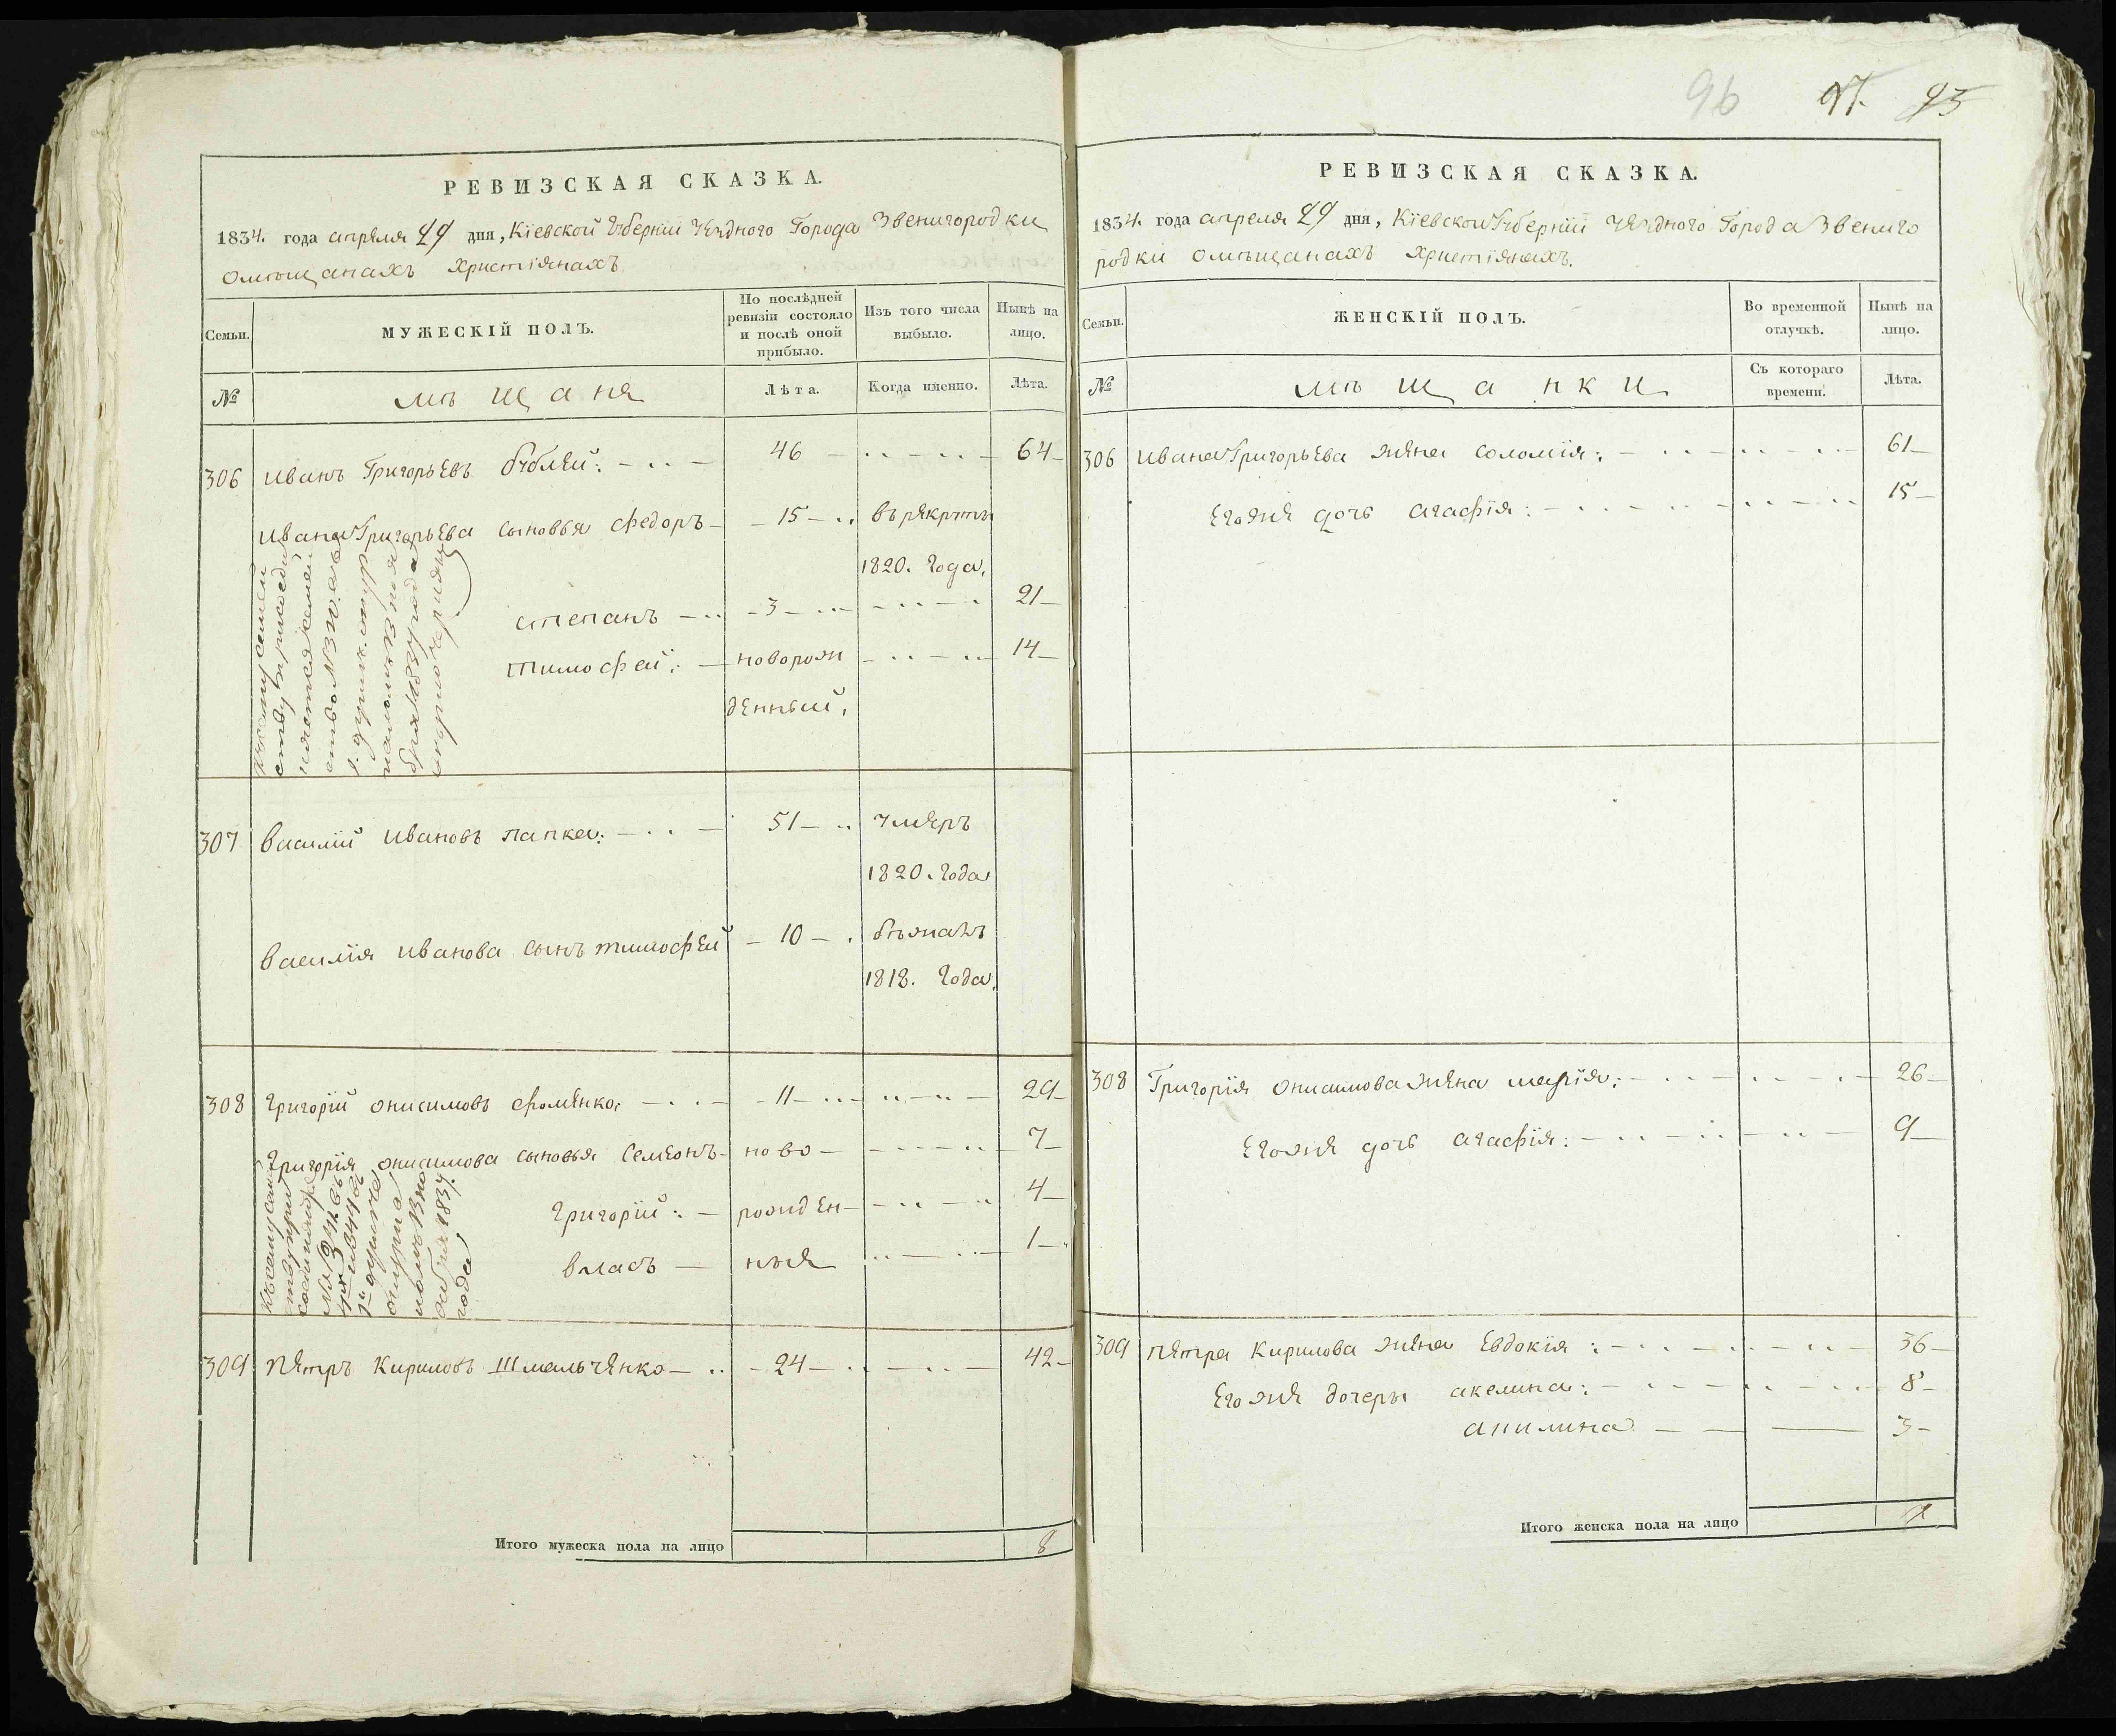 96 97. 95
РЕВИЗСКАЯ СКАЗКА.
1834. года апреля 29 дня, Кіевской Губерніи Уезднаго Города Звенигородки
омѣщанахъ христіянахъ
Семьи.
МУЖЕСКІЙ ПОЛЪ.
По послѣдней ревизіи состояло и послѣ оной прибыло.
Изъ того числа выбыло.
Нынѣ на лицо.
№
мѣщане
Лѣта.
Когда именно.
Лѣта.
306 иванъ Григорьевъ бублей: 46 64
ивана Григорьева сыновья федоръ 15 въ рекруты
1820. года.
степанъ 3 21
тимофей: новорож 14
денный.
307 василій ивановъ папка: 51 умеръ
1820. года
василія иванова сынъ тимофей 10 бѣжалъ
1818. года.
308 григорій онисимовъ фоменко: 11 29
григорія онисимова сыновья семіонъ ново 7
григорій: рожден 4
власъ ные 1
309 петръ кириловъ Шмальченко 24 42
Итого мужеска пола на лицо 8
РЕВИЗСКАЯ СКАЗКА.
1834. года апреля 29 дня, Кіевской Губерніи уезднаго Города Звениго
родки омѣщанахъ христіянахъ.
Семьи.
ЖЕНСКІЙ ПОЛЪ.
Во временной отлучкѣ.
Нынѣ на лицо.
№
мѣщанки
Съ котораго времени.
Лѣта.
306 ивана Григорьева жена соломія: 61
его же дочь агафія: 15
308 Григорія онисимова жена марія: 26
его же дочь агафія: 9
309 петра кирилова жена Евдокія: 36
его же дочеры акелина: 8
анилина 3
Итого женска пола на лицо